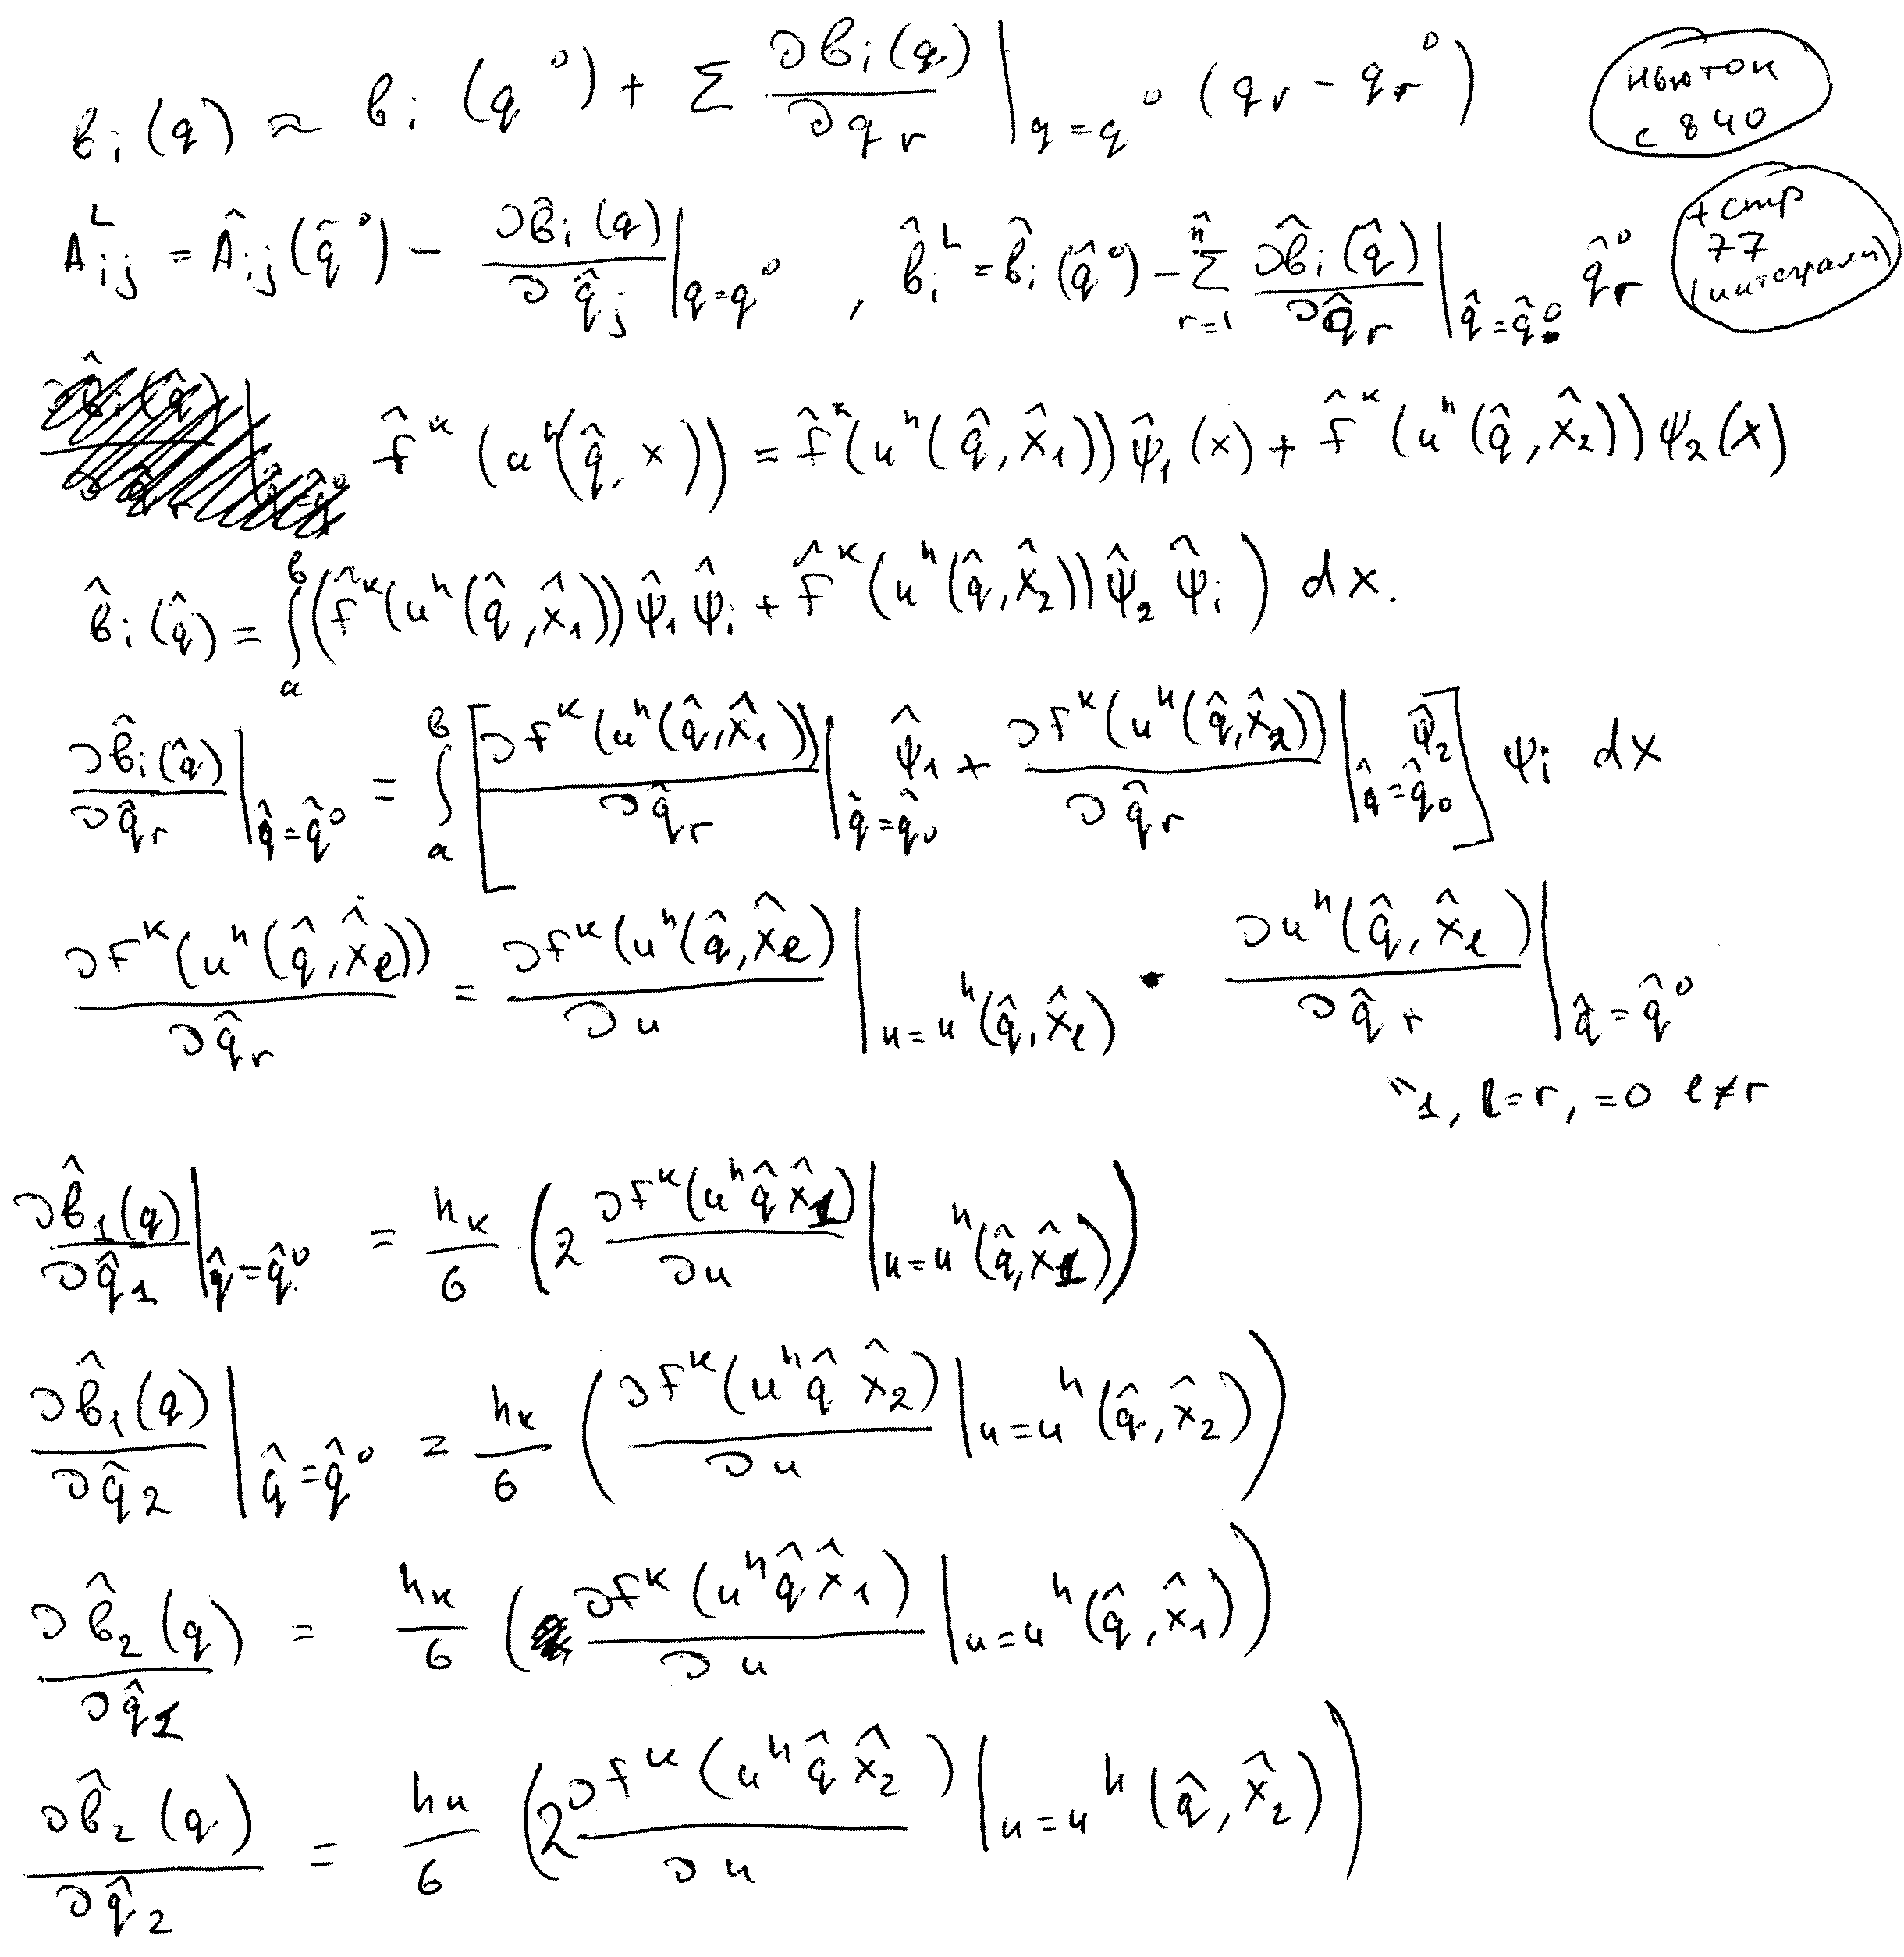 b_i(q) ≈ b_i(q^0) + Σ ∂b_i(q)/∂q_r |_{q=q^0} (q_r - q_r^0)
Ньютон
с 840
A^L_{ij} = Â_{ij}(q̂^0) - ∂b̂_i(q)/∂q̂_j |_{q=q^0} , b̂_i^L = b̂_i(q̂^0) - Σ_{r=1}^{n̂} ∂b̂_i(q̂)/∂q̂_r |_{q̂=q̂^0} q̂_r^0
+ стр
77
(интегралы)
f̂^k(u^h(q̂, x)) = f̂^k(u^h(q̂, x̂_1)) ψ̂_1(x) + f̂^k(u^h(q̂, x̂_2)) ψ_2(x)
b̂_i(q̂) = ∫_a^b (f̂^k(u^h(q̂, x̂_1)) ψ̂_1 ψ̂_i + f̂^k(u^h(q̂, x̂_2)) ψ̂_2 ψ̂_i) dx.
∂b̂_i(q̂)/∂q̂_r |_{q̂=q̂^0} = ∫_a^b [∂f^k(u^h(q̂, x̂_1))/∂q̂_r |_{q̂=q̂_0} ψ̂_1 + ∂f^k(u^h(q̂, x̂_2))/∂q̂_r |_{q̂=q̂_0} ψ̂_2] ψ_i dx
∂f^k(u^h(q̂, x̂_l))/∂q̂_r = ∂f^k(u^h(q̂, x̂_l)/∂u |_{u=u^h(q̂, x̂_l)} · ∂u^h(q̂, x̂_l)/∂q̂_r |_{q̂=q̂^0}
"1, l=r, =0 l≠r
∂b̂_1(q)/∂q̂_1 |_{q̂=q̂^0} = h_k/6 (2 ∂f^k(u^h q̂ x̂_1)/∂u |_{u=u^h(q̂, x̂_1)})
∂b̂_1(q)/∂q̂_2 |_{q̂=q̂^0} = h_k/6 (∂f^k(u^h q̂ x̂_2)/∂u |_{u=u^h(q̂, x̂_2)})
∂b̂_2(q)/∂q̂_1 = h_k/6 (∂f^k(u^h q̂ x̂_1)/∂u |_{u=u^h(q̂, x̂_1)})
∂b̂_2(q)/∂q̂_2 = h_k/6 (2 ∂f^k(u^h q̂ x̂_2)/∂u |_{u=u^h(q̂, x̂_2)})